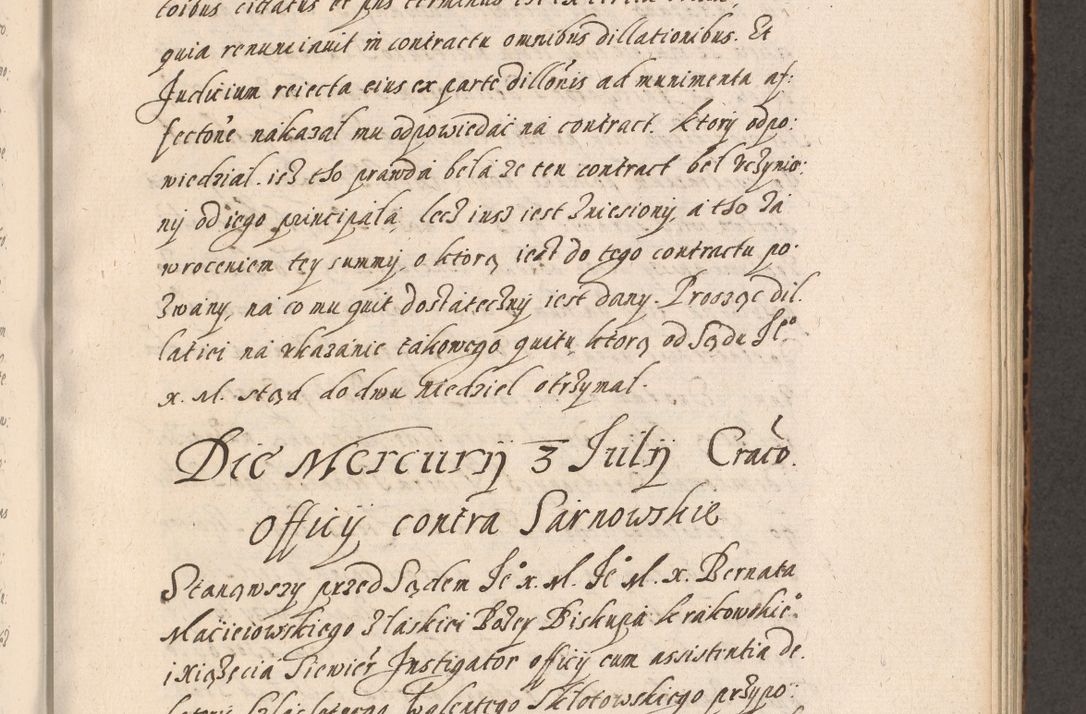 quia renunciavit in contractu omnibus dillationibus. Et
Judicium reiecta eius ex parte dillõnis ad munimenta af:
fectone nakazal mu odpowiedać na contract. ktory odpo:
wiedzial. iesz tho prawda bela ze ten contract bel uczynio:
ny od iego principala, lecz insz iest zniesiony, a tho za
wroceniem tey summy, o ktorą iest do tego contractu po:
zwany, na co mu quit dostateczny iest dany. Prosząc dil.
latiei na ukazanie takowego quitu, ktorą od Sądu Je°
x. M. stąd do dwu niedziel otrzymal.
Die Mercurij 3 Julij Craco.
Officij contra Sarnowskie
Stanąwszy przed Sądem Je° x. M. Je° M. x. Bernata
Macieiowskiego z laskiei Bozey Biskupa krakowskie°
i Xiążecia Siewier Instigator officij cum assistentia de.